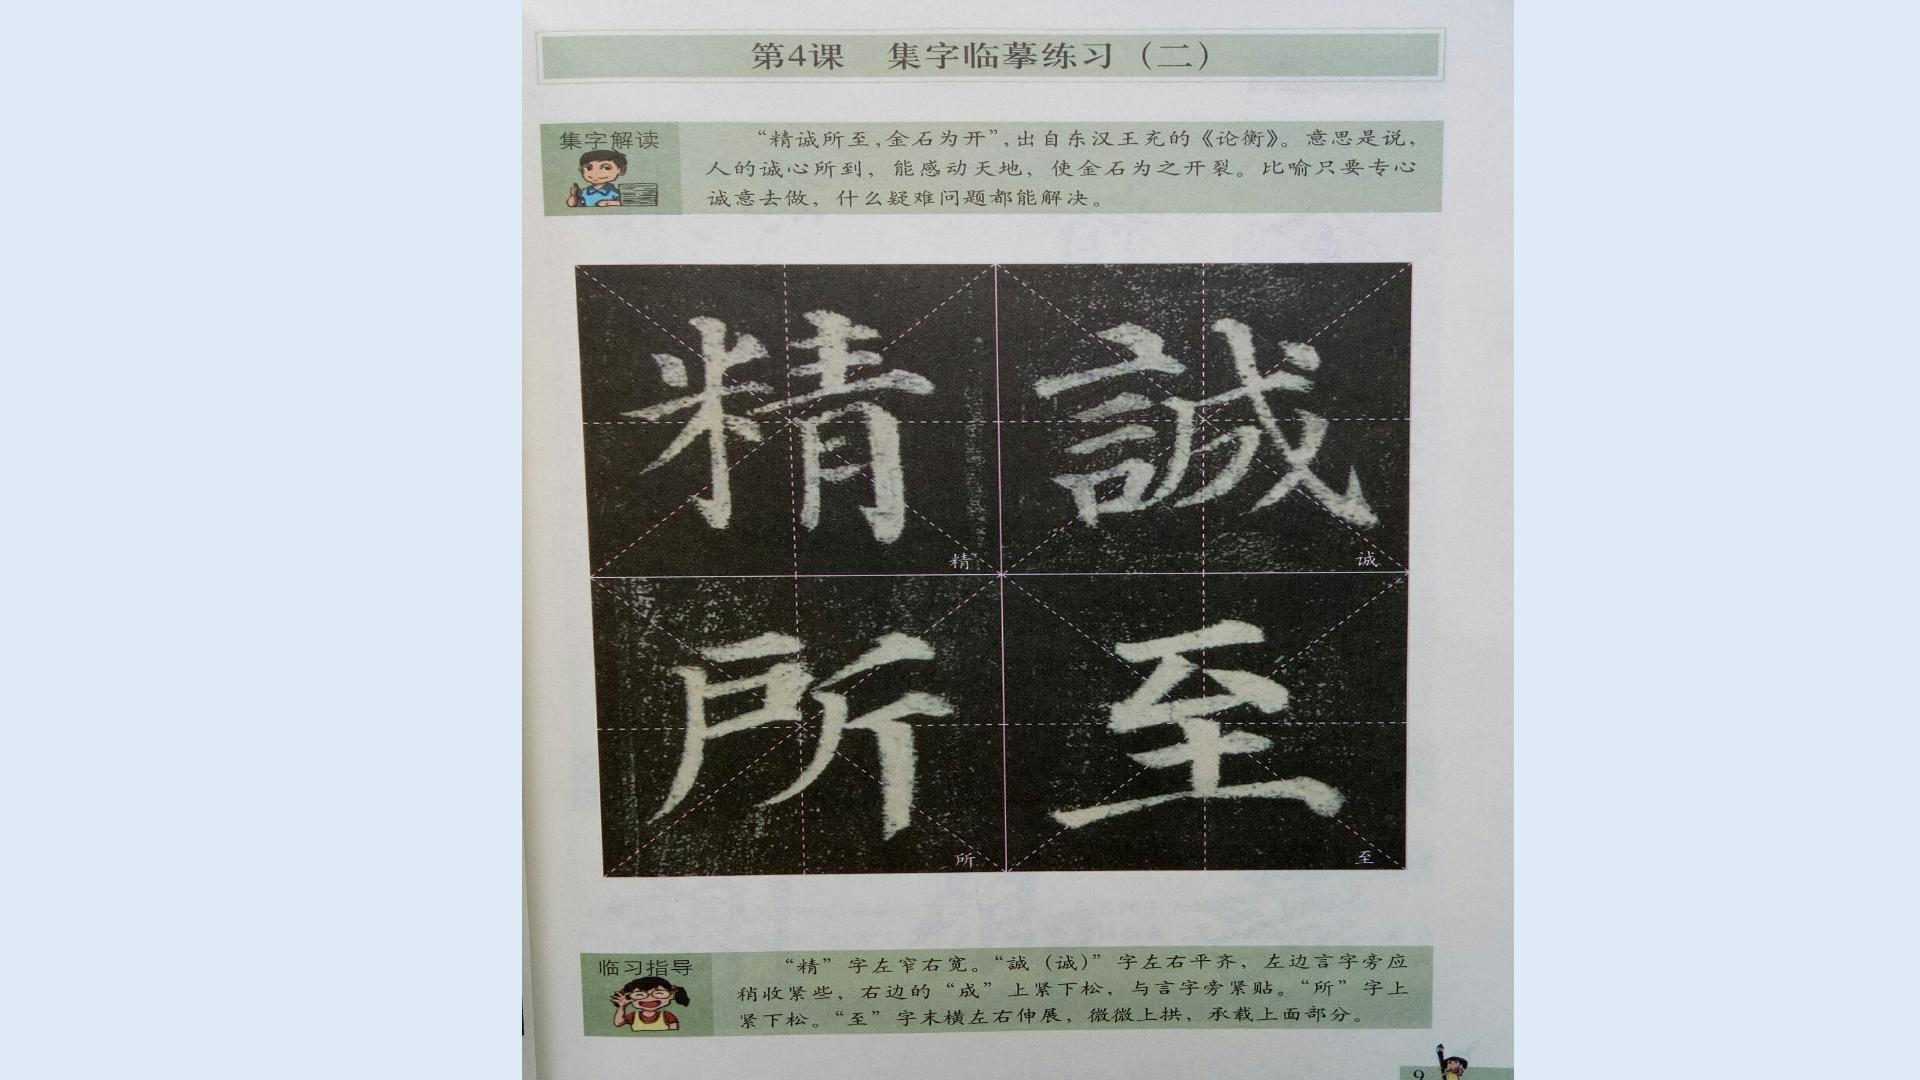 第4课　集字临摹练习（二）
集字解读
“精诚所至，金石为开”，出自东汉王充的《论衡》。意思是说，
人的诚心所到，能感动天地，使金石为之开裂。比喻只要专心
诚意去做，什么疑难问题都能解决。
精 誠
精 诚
所 至
所 至
临习指导
“精”字左窄右宽。“誠（诚）”字左右平齐，左边言字旁应
稍收紧些，右边的“成”上紧下松，与言字旁紧贴。“所”字上
紧下松。“至”字末横左右伸展，微微上拱，承载上面部分。
9